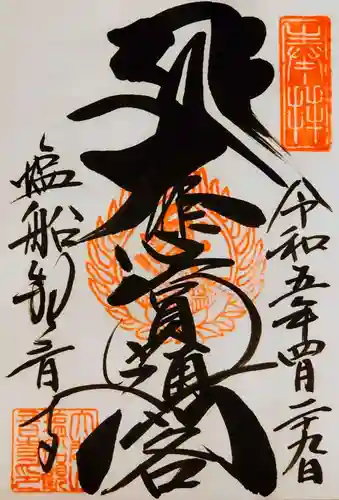 奉拝
令和五年四月二十九日
大悲寶閣
塩船観音寺